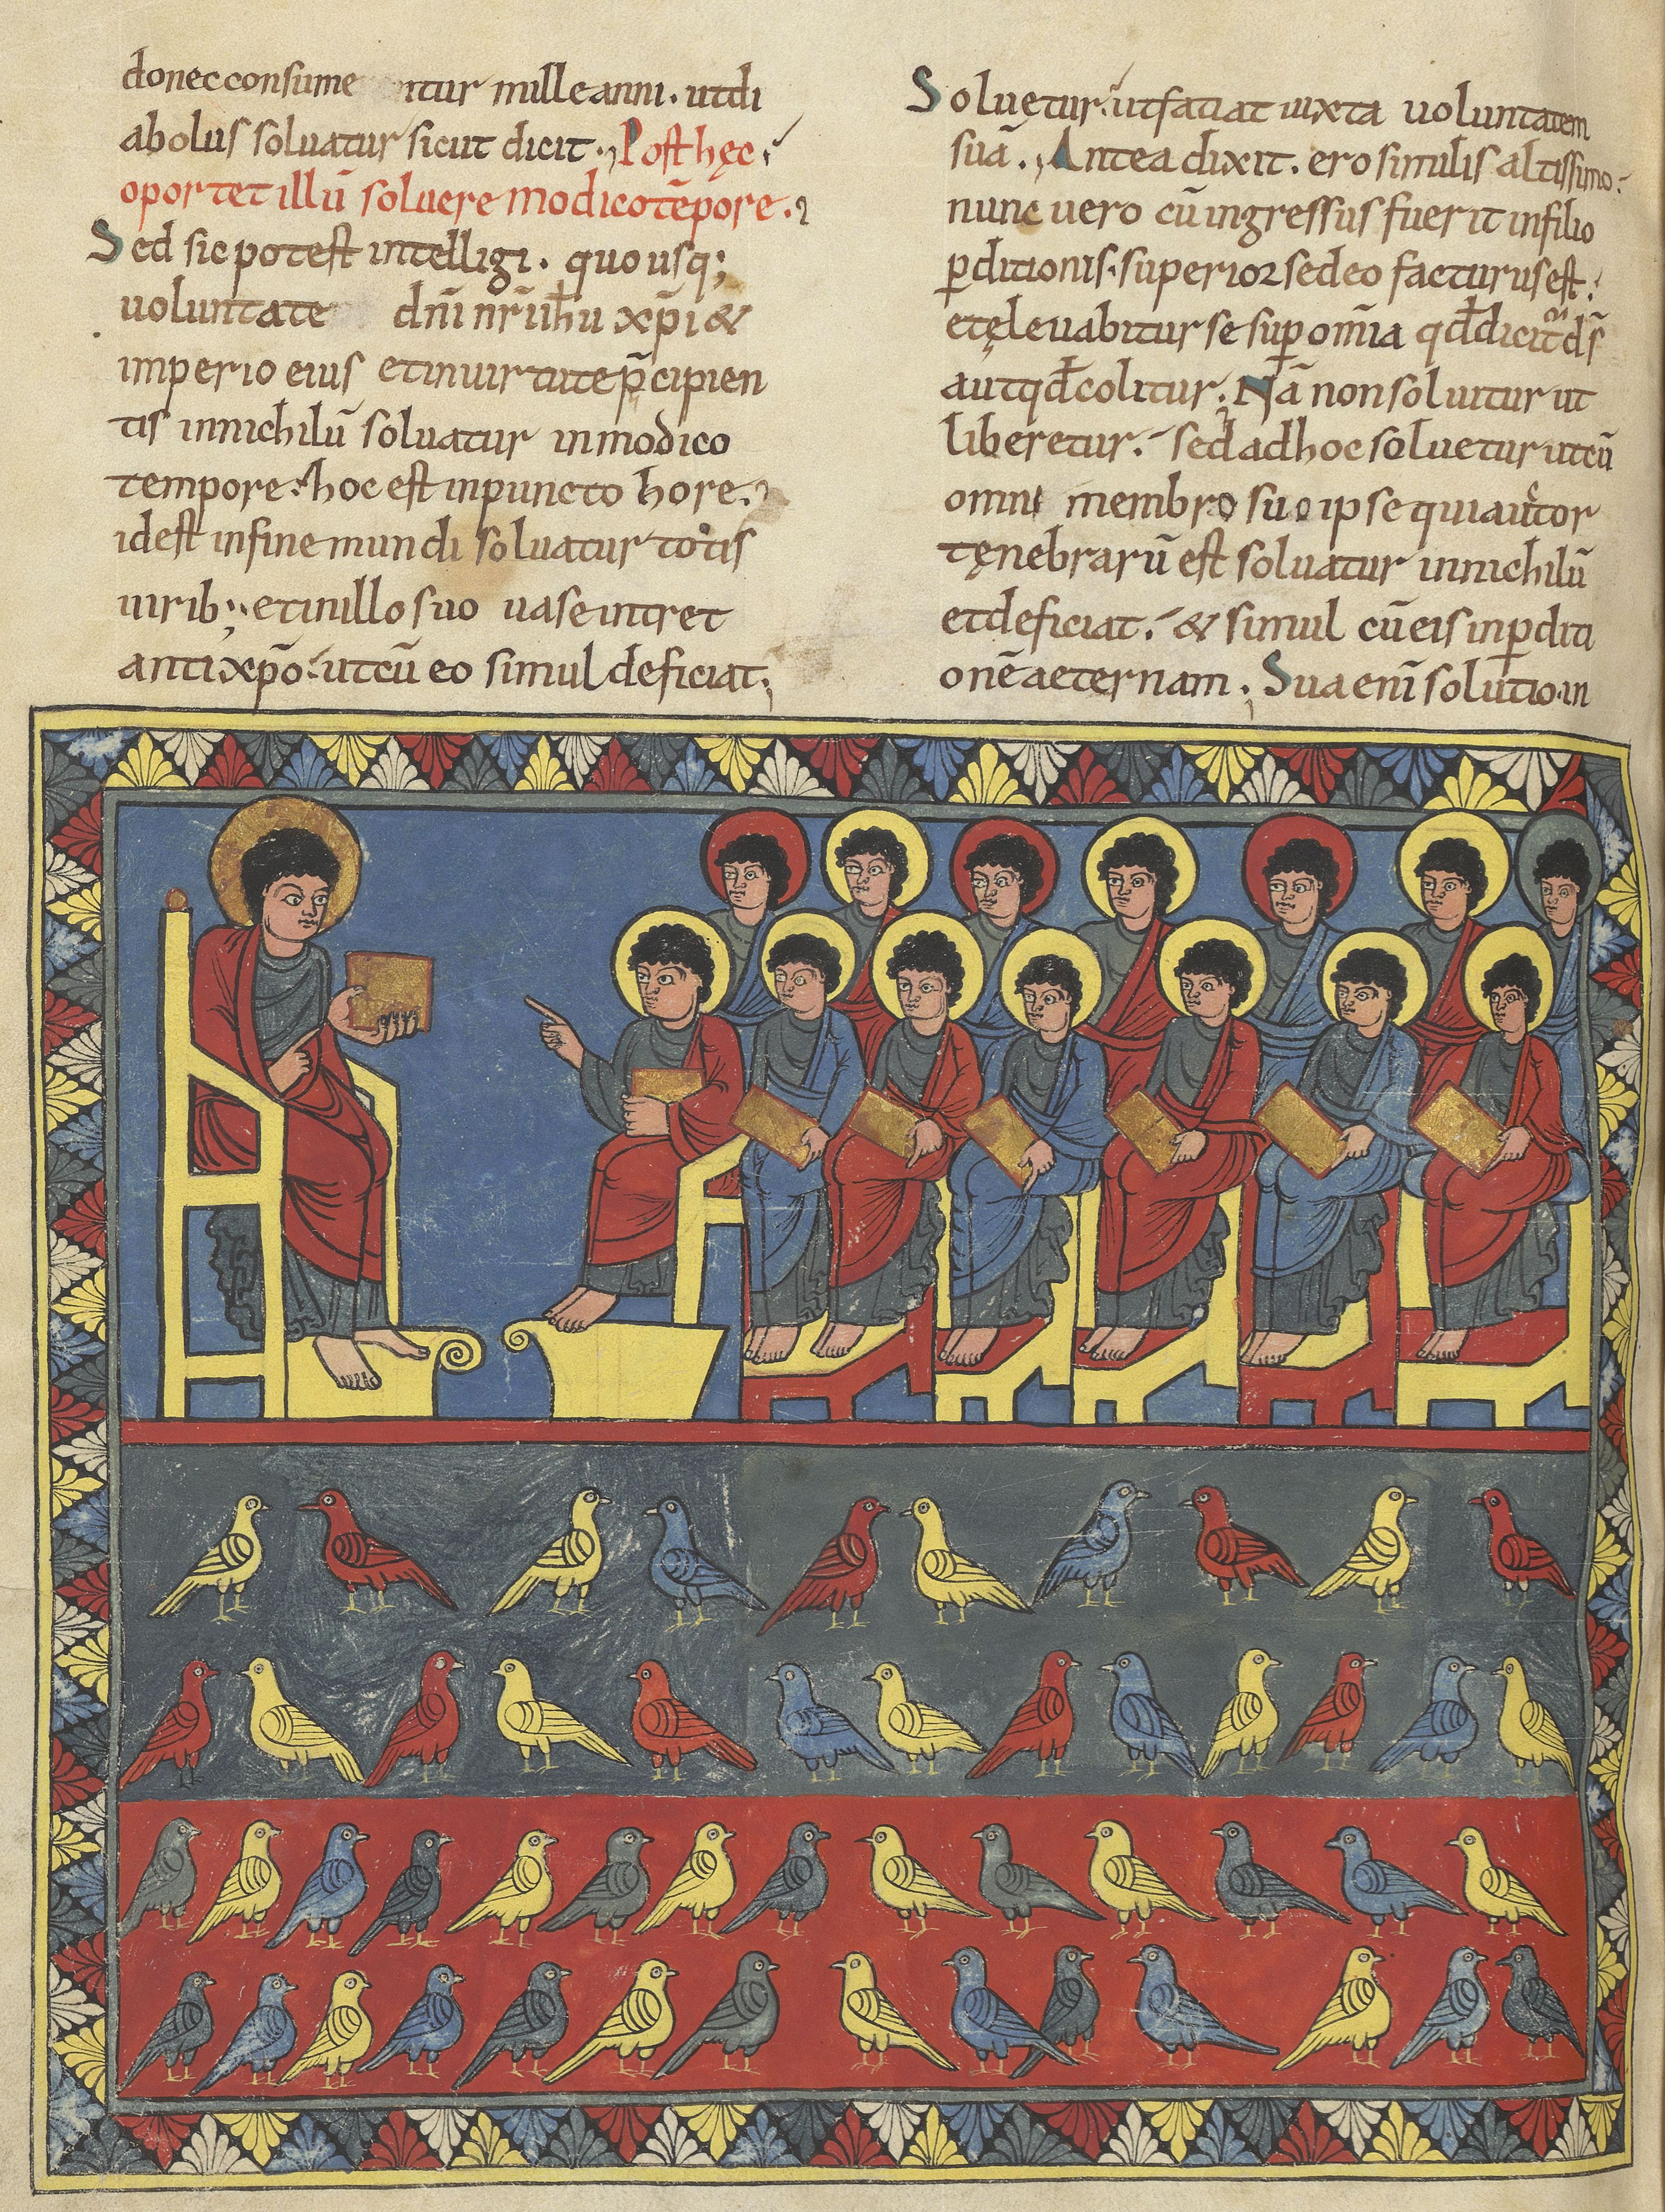 donec consume ntur mille anni. ut di
abolus soluatur sicut dicit. Post hęc
oportet illū soluere modico tēpore.
Sed sic potest intelligi. quo usq;
uoluntate dn̄i nr̄i ihu xp̄i &
imperio eius et in uirtute p̄cipien
tis in nichilū soluatur in modico
tempore. hoc est in puncto hore.
id est in fine mundi soluatur totis
uirib; et in illo suo uase intret
antixp̄o. ut cū eo simul deficiat.
Soluetur. ut faciat iuxta uoluntatem
suā. Antea dixit. ero similis altissimo.
nunc uero cū ingressus fuerit in filio
ꝑditionis. superior se deo facturus est.
et ęleuabitur se suꝑ om̄ia qđ dicitur ds̄
aut qđ colitur. Nā non soluitur ut
liberetur. sed ad hoc soluetur ut cū
omni membro suo ipse qui auctor
tęnebrarū est soluatur in nichilū
et deficiat. & simul cū eis in ꝑditi
onē aeternam. Sua enī solutio in